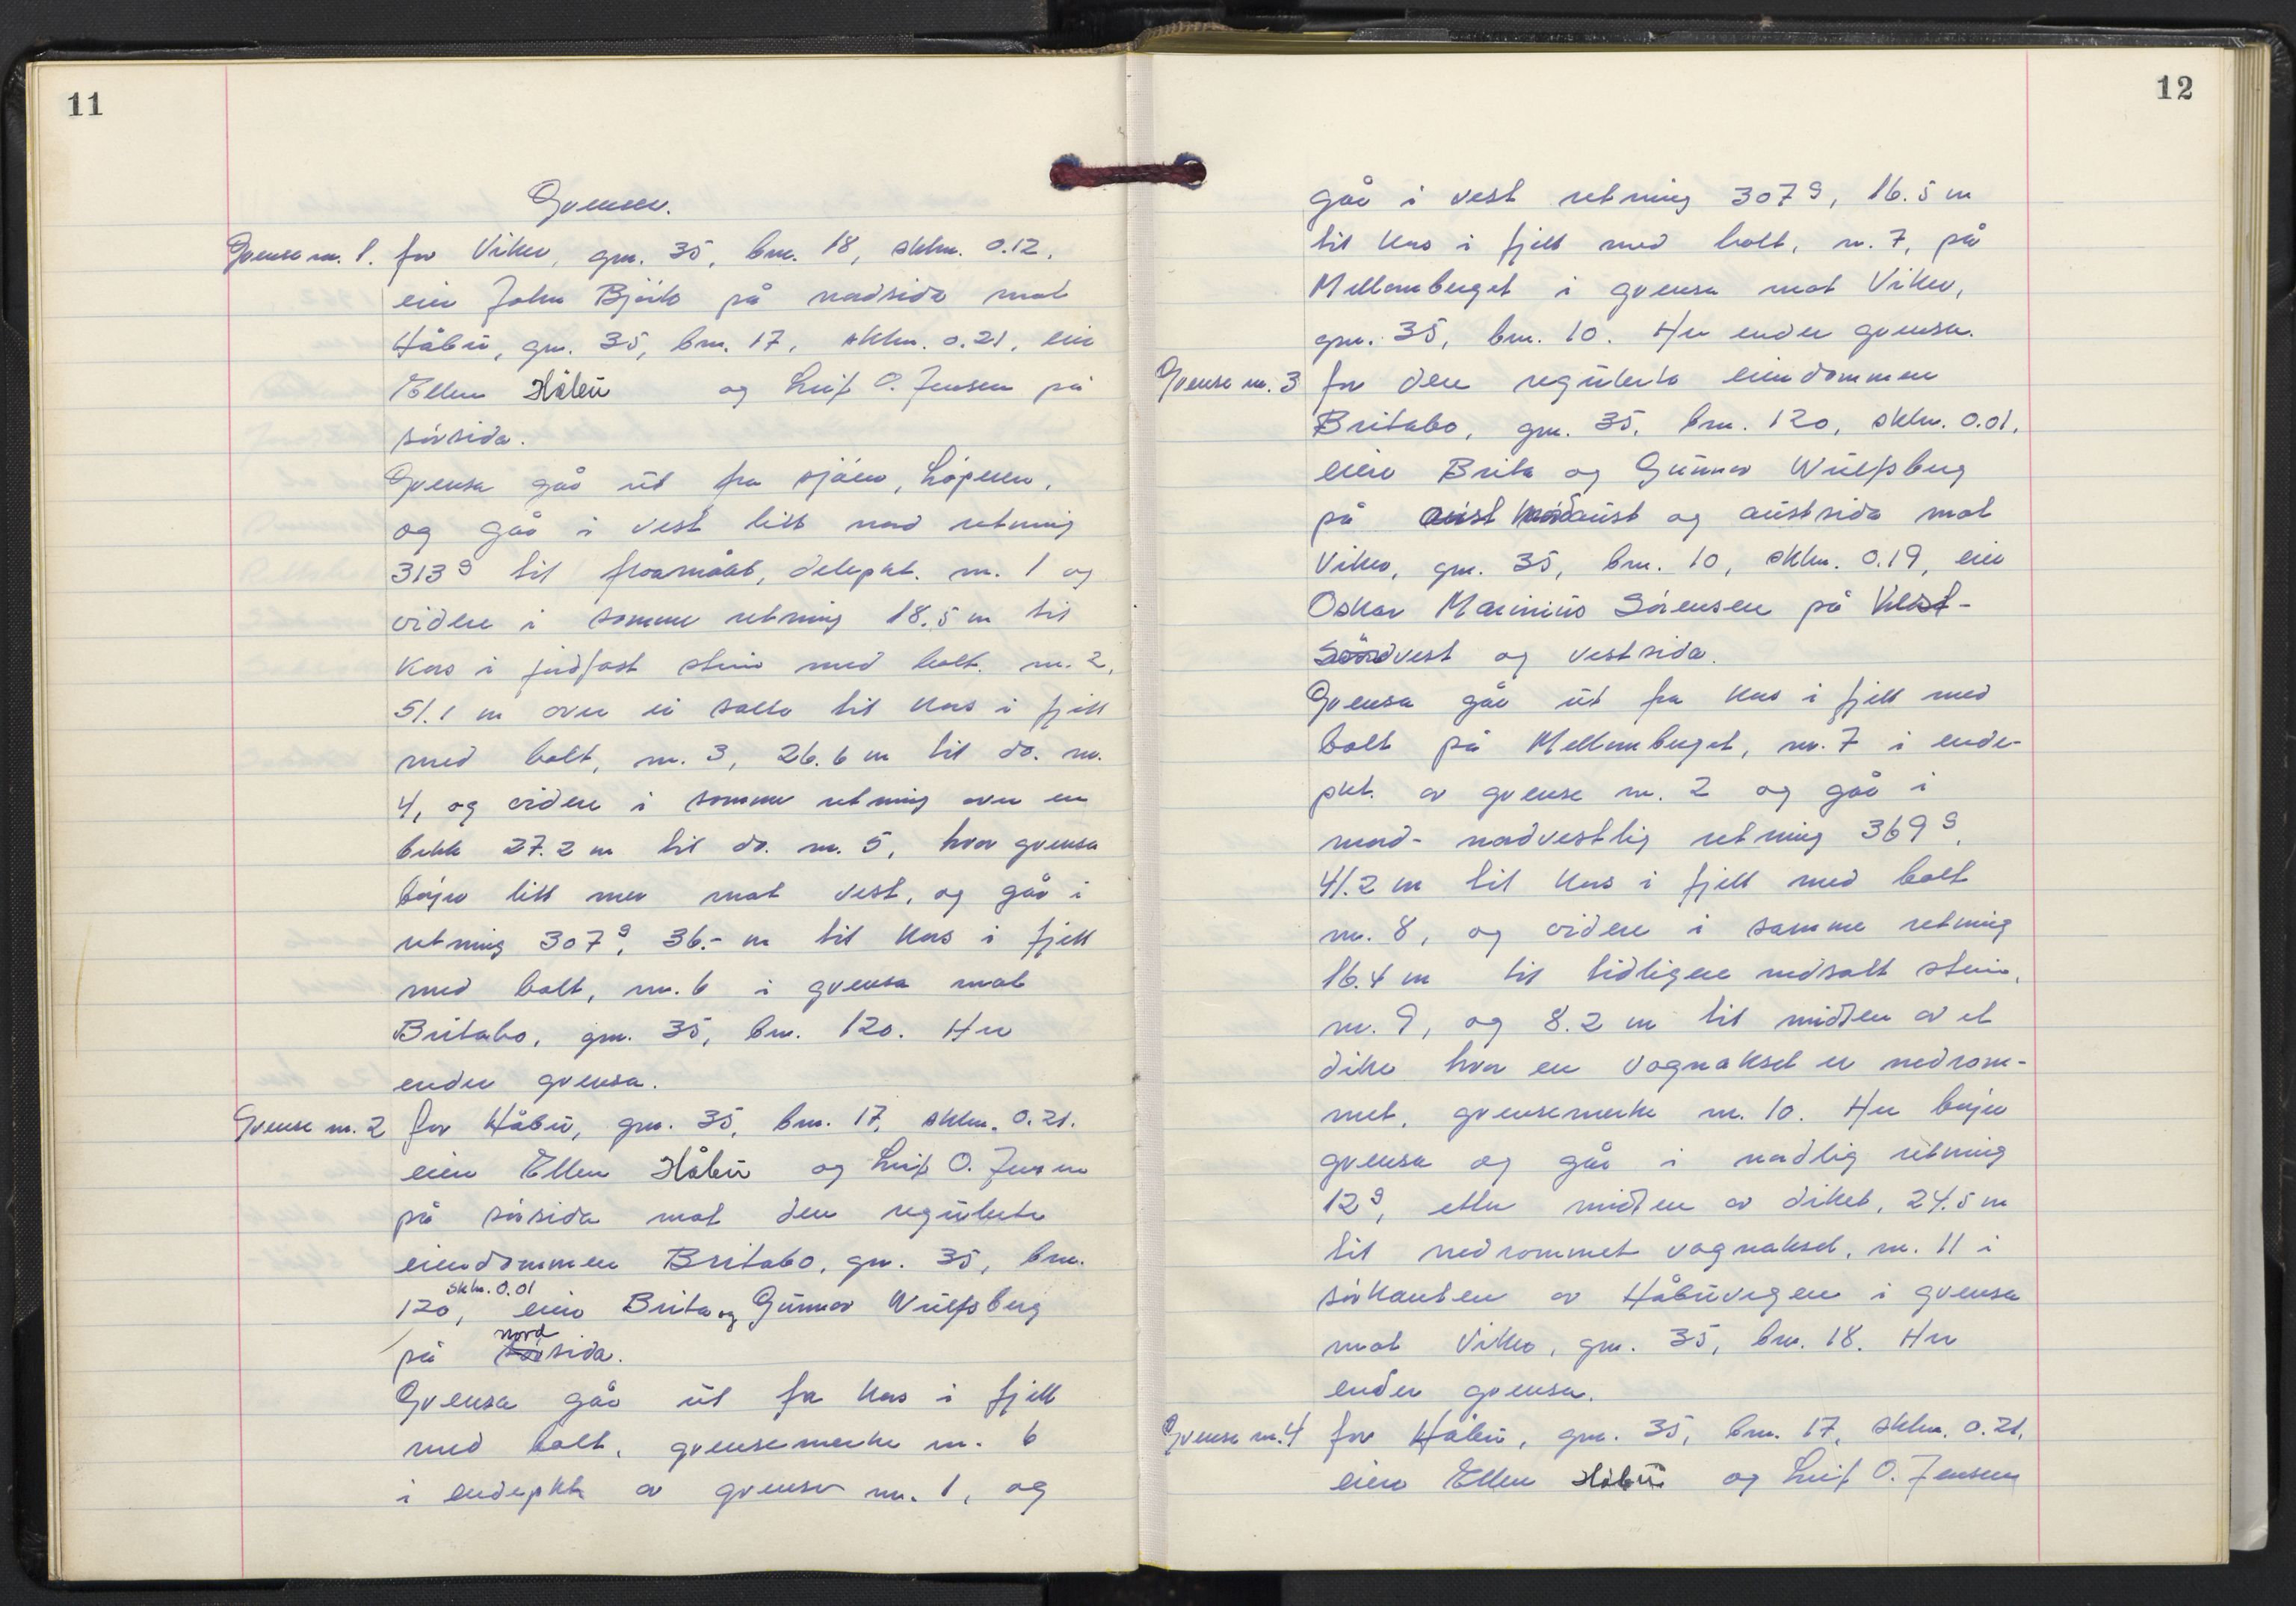 11
Grenser.
Grense nr. 1. for Viker, gnr. 35, bnr. 18, skbm. 0.12,
eier John Björk på nordsida mot
Håbu, gnr. 35, bnr. 17, skbm. 0.21, eier
Ellen Håbu og Leif O. Jensen på
sörsida.
Grensa går ut fra sjöen, Löperen,
og går i vest litt nord retning
313g til floamålet, delepkt. nr. 1 og
videre i samme retning 18.5 m til
kors i jordfast stein med bolt nr. 2,
51.1 m over ei sallo til kors i fjell
med bolt, nr. 3, 26.6 m til do. nr.
4, og videre i samme retning over en
bekk 27.2 m til do. nr. 5, hvor grensa
böjer litt mer mot vest, og går i
retning 307g, 36.- m til kors i fjell
med bolt, nr. 6 i grensa mot
Britabo, gnr. 35, bnr. 120. Her
ender grensa.
Grense nr. 2 for Håbu, gnr. 35, bnr. 17, skbm. 0.21.
eier Ellen Håbu og Leif O. Jensen
på sörsida mot den regulerte
eiendommen Britabo, gnr. 35, bnr.
120, skbm. 0.01 eier Brita og Gunnar Wulfsberg
på sör nord sida.
Grensa går ut fra kors i fjell
med bolt, grensemerke nr. 6
i endepkt. av grense nr. 1, og
12
går i vest retning 307g, 16.5 m
til kors i fjell med bolt, nr. 7, på
Mellomberget i grensa mot Viker,
gnr. 35, bnr. 10. Her ender grensa.
Grense nr. 3 for den regulerte eiendommen
Britabo, gnr. 35, bnr. 120, skbm. 0.01,
eier Brita og Gunnar Wulfsberg
på aust nordaust og austsida mot
Viker, gnr. 35, bnr. 10, skbm. 0.19, eier
Oskar Marinius Sörensen på Vest-
Sördvest og vestsida.
Grensa går ut fra kors i fjell med
bolt på Mellomberget, nr. 7 i ende-
pkt. av grense nr. 2 og går i
nord- nordvestlig retning 369g,
41.2 m til kors i fjell med bolt
nr. 8, og videre i samme retning
16.4 m til tidligere nedsatt stein,
nr. 9, og 8.2 m til midten av et
dike hvor en vognaksel er nedram-
met, grensemerke nr. 10. Her böjer
grensa og går i nordlig retning
12g, etter midten av diket, 24.5 m
til nedrammet vognaksel, nr. 11 i
sörkanten av Håbuvegen i grensa
mot Viker, gnr. 35, bnr. 18. Her
ender grensa.
Grense nr. 4 for Håbu, gnr. 35, bnr. 17, skbm. 0.21,
eier Ellen Håbu og Leif O. Jensen